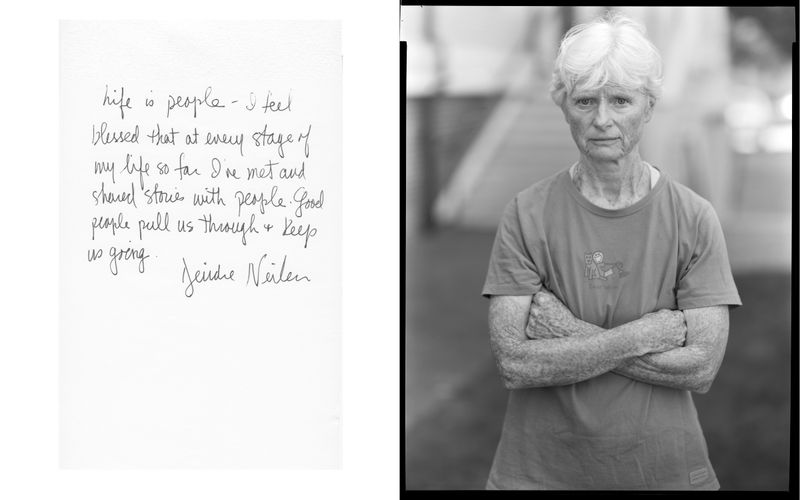 Life is people - I feel
blessed that at every stage of
my life so far I've met and
shared stories with people. Good
people pull us through + keep
us going.
Deirdre Neilen